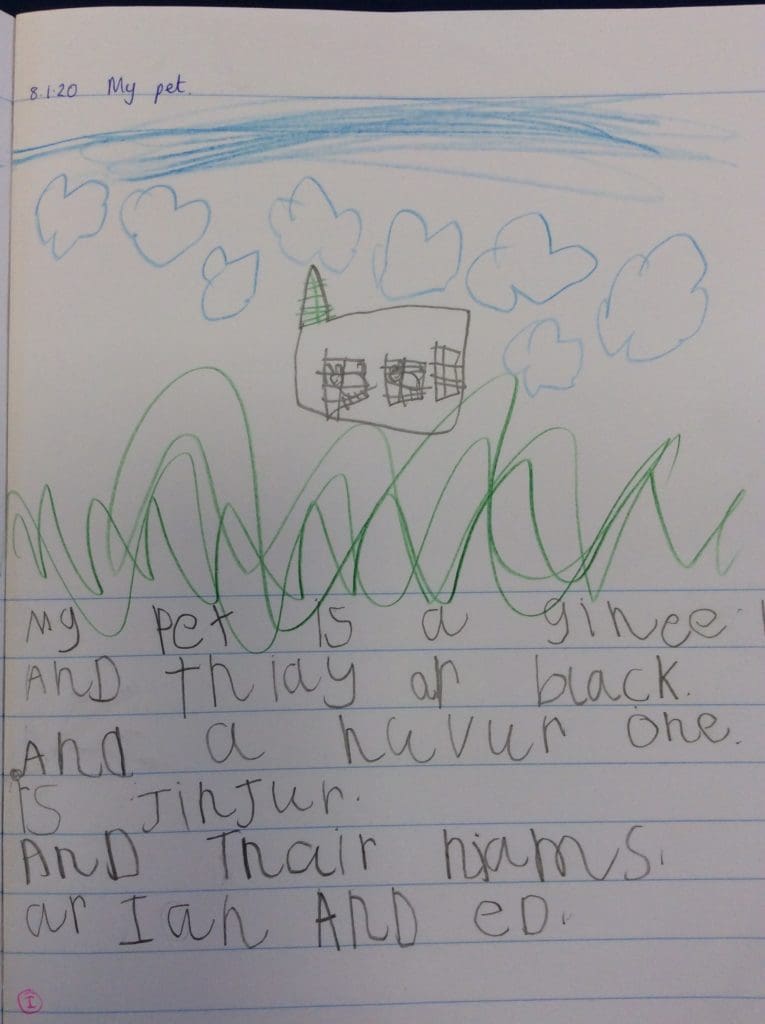 8.1.20 My pet.
My pet is a ginee
AnD thiay ar black.
And a huvur one.
is JinJur.
AnD Thair njams.
ar Ian AnD eD.
I